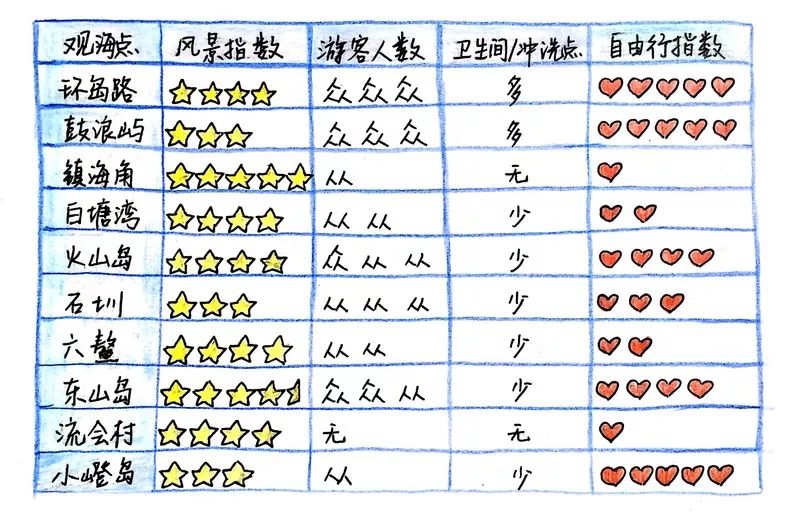 观海点 风景指数 游客人数 卫生间/冲洗点 自由行指数
环岛路 众 众 众 多
鼓浪屿 众 众 众 多
镇海角 从 无
白塘湾 从 从 少
火山岛 众 从 从 少
石圳 从 从 从 少
六鳌 从 从 少
东山岛 众 众 从 少
流会村 无 无
小嶝岛 从 少